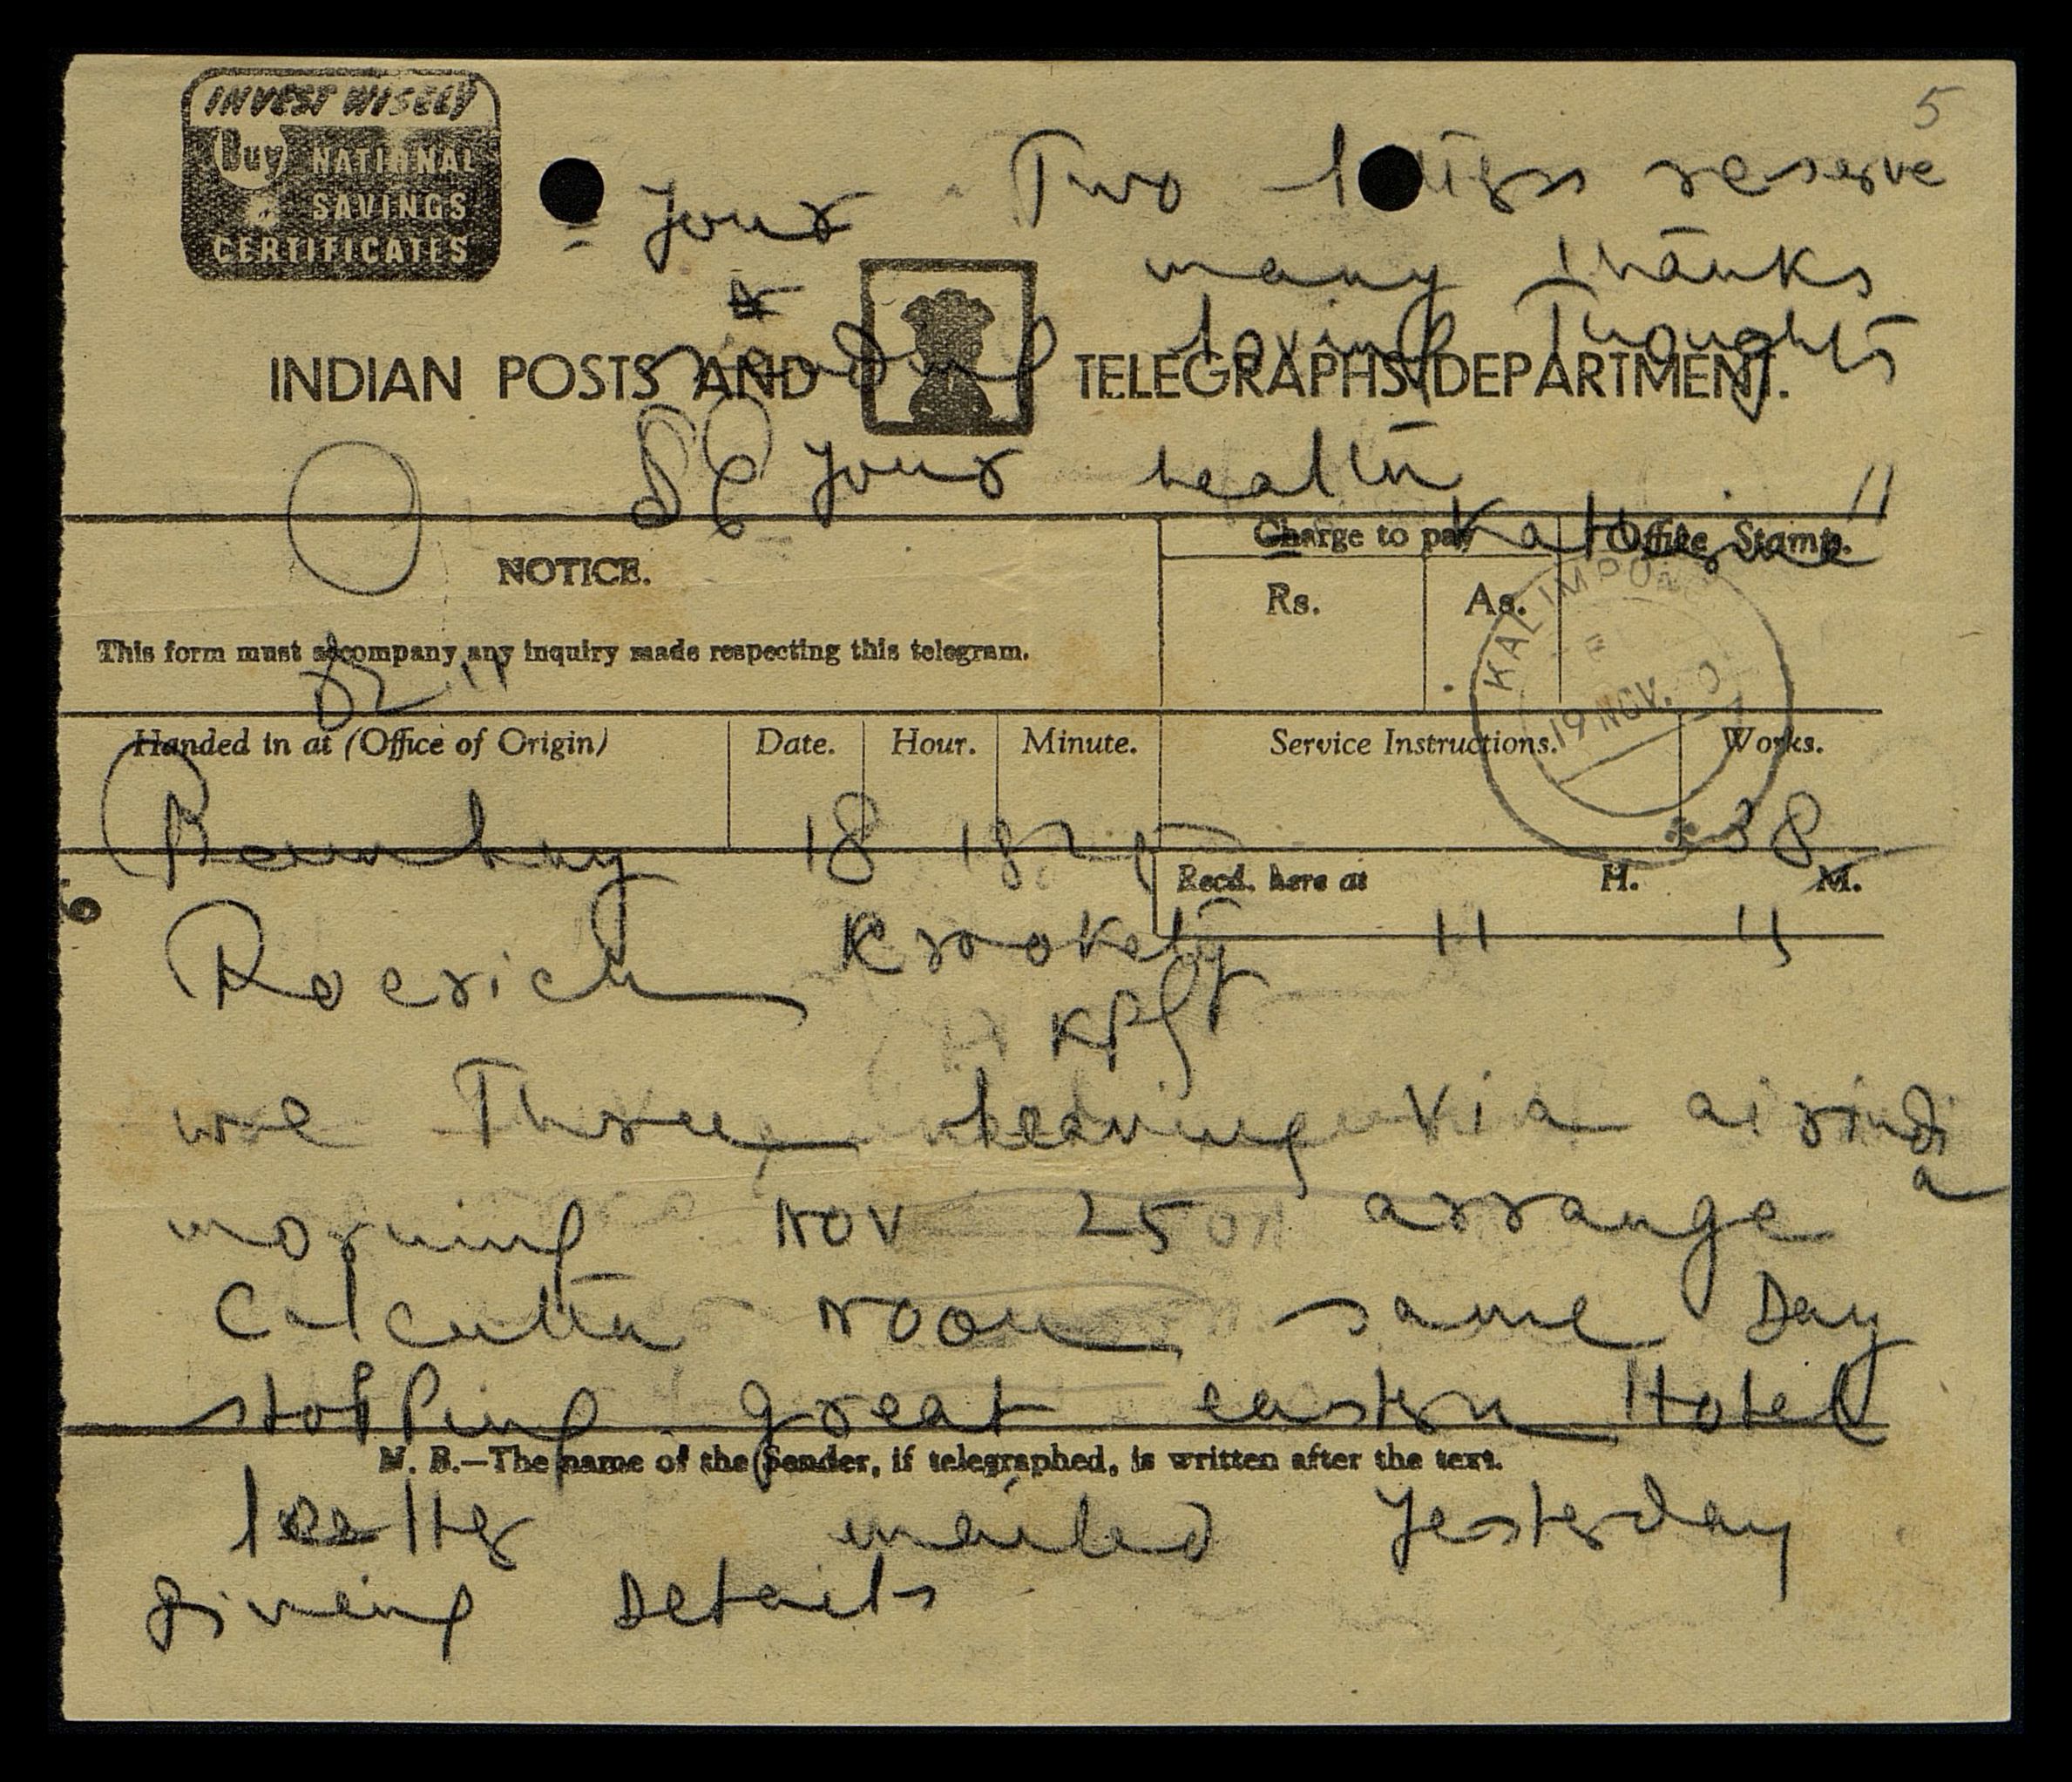 INVEST WISELY
Buy NATIONAL
SAVINGS
CERTIFICATES
5
your Two letters reserve
many thanks
loving Thoughts
INDIAN POSTS AND TELEGRAPHS DEPARTMENT.
your health
Katherine
NOTICE.
Charge to pay
Office Stamp.
Rs. As.
This form must accompany any inquiry made respecting this telegram.
KALIMPONG
19 NOV.
Handed in at (Office of Origin) Date. Hour. Minute. Service Instructions. Works.
Bombay 18 38
Recd. here at H. M.
6
Roerich Krookety 11 15
KPG
we Three leaving via airindia
morning NOV 25 arrange
Calcutta Noon same Day
stopping great eastern Hotel
N. B.—The name of the Sender, if telegraphed, is written after the text.
mailed yesterday
giveing Details